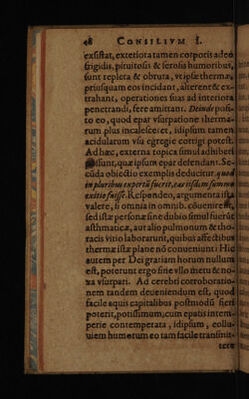 48 CONSILIVM I.
exsistat, exteriora tamen corporis adeò
frigidis, pituitosis & serosis humoribus,
sunt repleta & obruta, vt ipsæ thermæ,
priusquam eos incidant, alterent & ex-
trahant, operationes suas ad interiora
penetrandi, ferè amittant. Deinde posi-
to eo, quod epar vsurpatione therma-
rum plus incalesceret, idipsum tamen
acidularum vsu egregiè corrigi potest.
Ad hæc, externa topica simul adhiberi
possunt, quæ ipsum epar defendant. Se-
cūda obiectio exemplis deducitur, quod
in pluribus expertū fuerit, eas iisdem summo
exitio fuisse. Respondeo, argumenta ista
valere, si omnia in omnib. conuenirēt,
sed istæ personæ sine dubio simul fuerūt
asthmaticæ, aut aliò pulmonum & tho-
racis vitio laborarunt, quibus affectibus
thermæ istæ planè nō conueniunt: Hîc
autem per Dei gratiam horum nullum
est, poterunt ergo sine vllo metu & no-
xa vsurpari. Ad cerebri corroboratio-
nem tandem deueniendum est, quod
facile equis capitalibus postmodū fieri
poterit, potissimùm, cum epatis intem-
perie contemperata, idipsum, eollu-
uiem humorum eo tam facile transmit-
tere